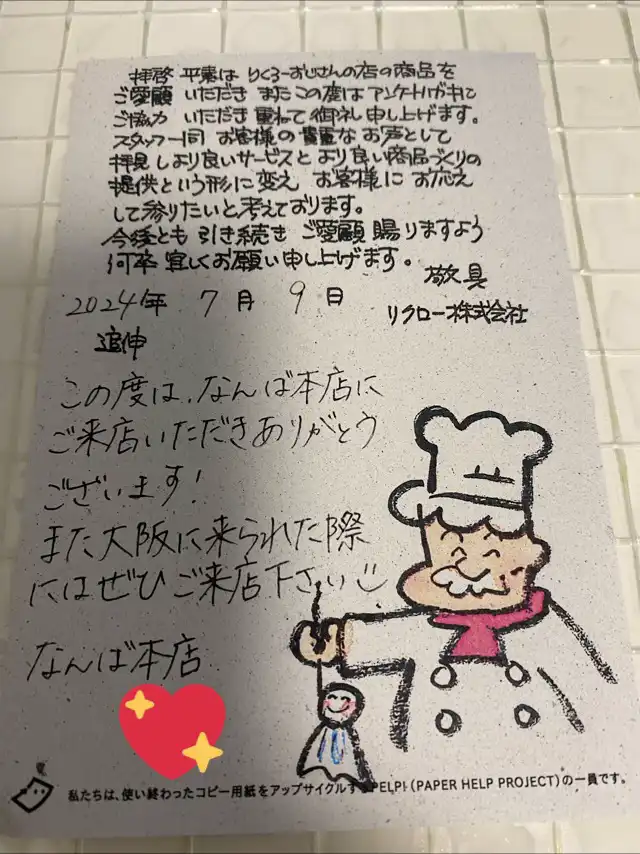 拝啓 平素は りくろーおじさんの店の商品を
ご愛顧 いただき またこの度は アンケートハガキに
ご協力 いただき 重ねて 御礼 申し上げます。
スタッフ一同 お客様の 貴重な お声として
拝見し より良いサービスと より良い商品づくりの
提供という形に変え お客様に お応え
して参りたいと考えております。
今後とも 引き続き ご愛顧 賜りますよう
何卒 宜しくお願い申し上げます。
敬具
2024年 7月 9日
リクロー株式会社
追伸
この度は、なんば本店に
ご来店いただきありがとう
ございます!
また大阪に来られた際
にはぜひご来店下さい
なんば本店
私たちは、使い終わったコピー用紙をアップサイクルするPELP!(PAPER HELP PROJECT)の一員です。